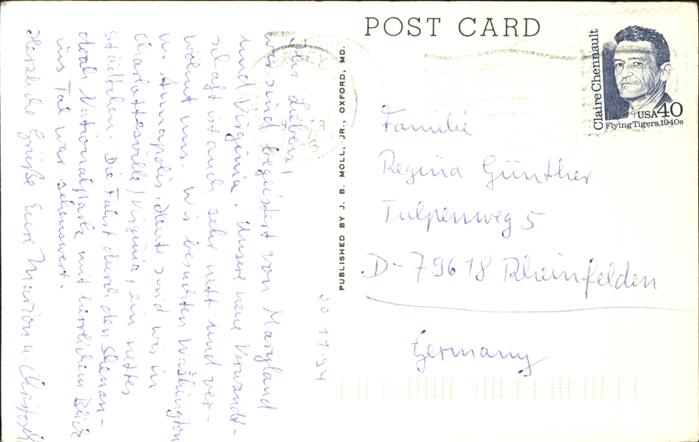 POST CARD
Claire Chennault
USA 40
Flying Tigers, 1940s
PUBLISHED BY J. B. MOLL, JR., OXFORD, MD.
20 11 94
Ihr Lieben!
Wir sind begeistert von Maryland
und Virginia. Unsere neue Verwandt-
schaft ist auch sehr nett und ver-
wöhnt uns. Wir besuchten Washington
u. Annapolis, heute sind wir in
Charlottesville/Virginia, ein nettes
Städtchen. Die Fahrt durch den Shenan-
doah Nationalpark mit herrlichem Blick
ins Tal war sehenswert.
Herzliche Grüße Eure Marion u.
Familie
Regina Günther
Tulpenweg 5
D-79618 Rheinfelden
Germany